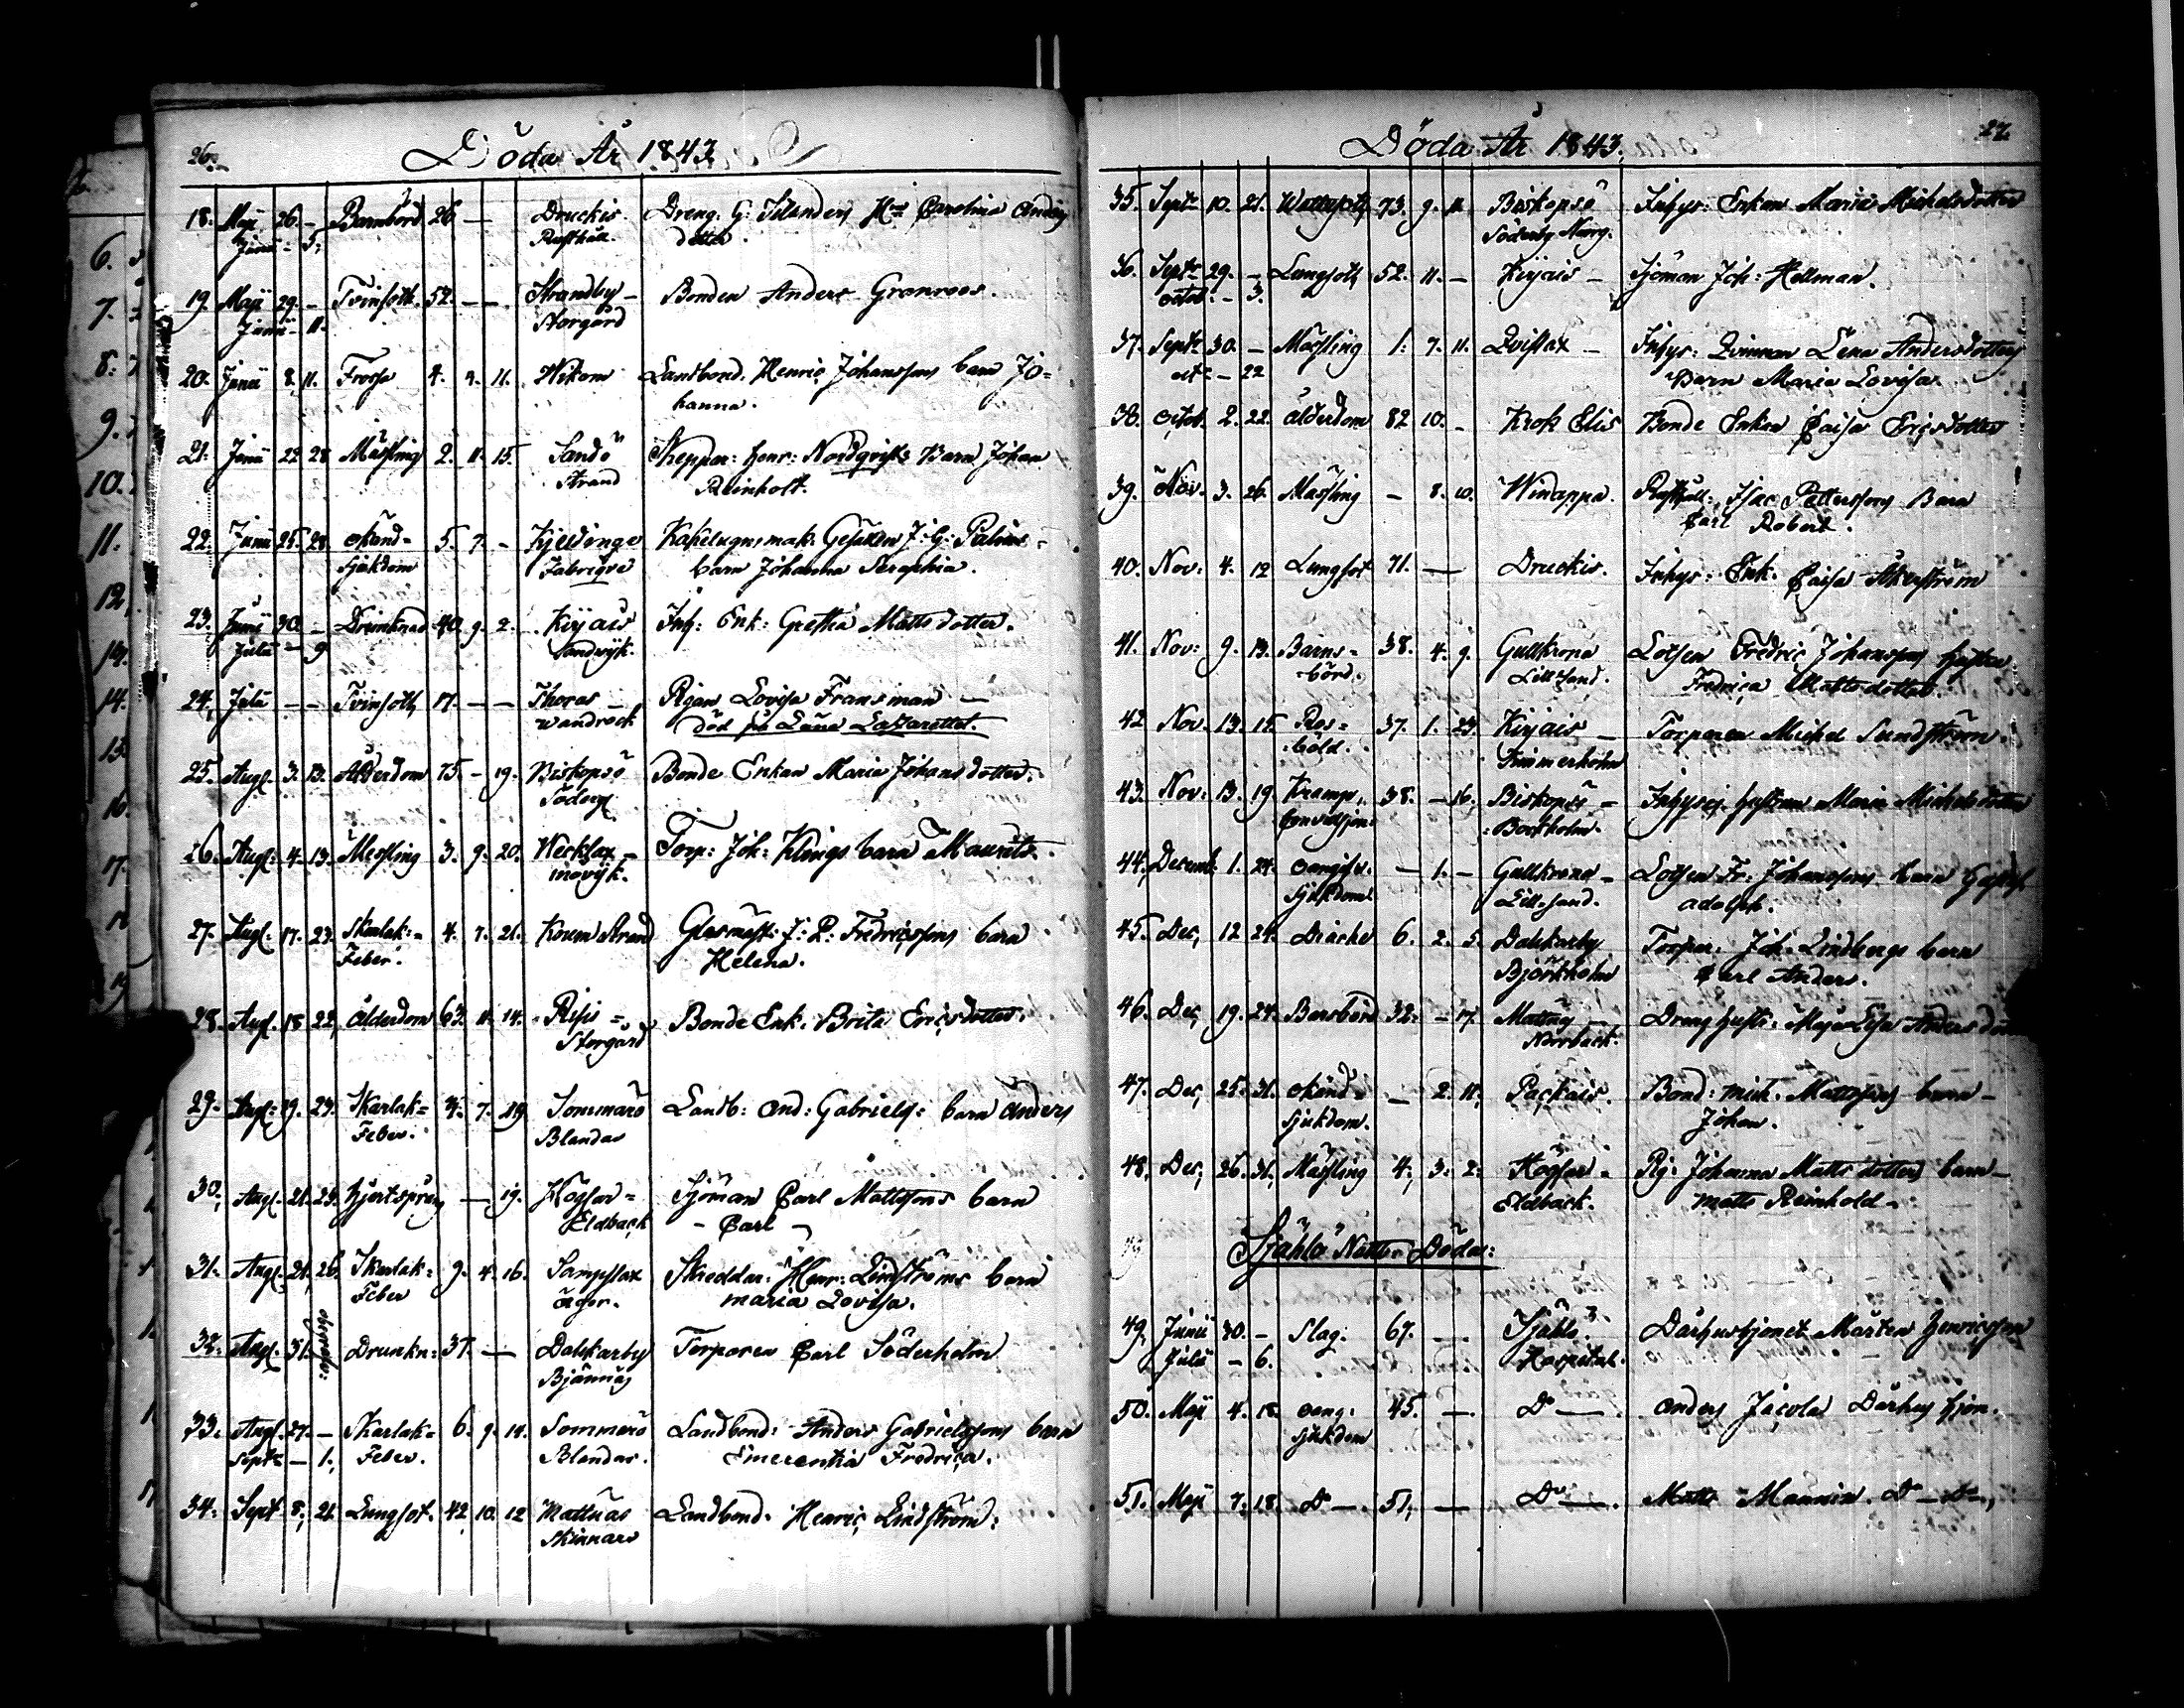 26.
Döda År 1843
18. Maji 26. — Barnbörd 26 — Druckis. Dreng. G: Hru Carolina Anders
Junii — 5. Rusthåll. dotter.
19. Maji 29. — Tvinsoth. 52. — — Strandby — Bonden Anders Grönroos.
Junii — 11. Storgård
20. Junii 8. 11. Frossa 4. 9. 11. Wikom Landbond. Henric Johanssons barn Jo=
hanna.
21. Junii 22 28 Mässling 2. 11. 15. Sandö Skeppar: Henr: Nordqvists Barn Johan
Strand Reinholt.
22. Junii 25. 28 okänd= 5. 7. — Kjeldinge Kakelugnsmak: Gesällen J: G: Palins
sjukdom Fabrique barn Johanna Seraphia.
23. Junii 30. — Drunknad 40. 9. 2. Kirjais Inh: Enk: Gretha Matts dotter.
Julii — 9 Sandvyk.
24. Julii — — Tvinsoth 17. — — Thoras — Pigan Lovisa Fransman —
Wandrock död på Läns Lazarettet.
25. Aug. 3. 13. Ålderdom 75 — 19. Biskopsö Bonde Enkan Maria Johans dotter.
Söderg
26. Aug. 4. 13. Messling 3. 9. 20. Werkfax — Torp: Joh: Klings barn Maurits.
inovyk.
27. Aug. 17. 23. Skarlak:= 4. 7. 21. Koum Strand Glasmäst: J: P: Fredricssons barn
Feber. Helena.
28. Aug. 18 22, ålderdom 63. 11. 14. Risis =. Bonde Enk. Brita Erics dotter.
Storgard
29. Aug. 19. 23. Skarlak= 4. 7. 19. Sommarö Landb: And: Gabriels: barn Anders
Feber. Blandas
30. Aug. 21. 23. Hjertsprång — 19. Högsar= Sjöman Carl Mattssons barn
Eldback — Carl —
31. Aug. 21. 26. Skarlak= 9. 4. 16. Sampslax Skreddar: Henr: Lindströms barn
Feber ägor. Maria Lovisa.
32. Aug. 31. Drunkn: 37. — Dalskarby Torparen Carl Söderholm
Björnnäs
33. Aug. 27. — Skarlak= 6. 9. 14. Sommarö Landbond: Anders Gabrielssons barn
Septr — 1. Feber. Blandas. Emerentia Fredrica.
34. Sept 8. 21. Lungsot. 42. 10. 12 Mattnäs Landbond. Henric Lindström.
Skinnars
27.
Döda År 1843.
35. Septr 10. 21. Wattusoth 73. 9. 11. Biskopsö Inhys: Enkan Maria Michelsdotter
Söderby Norrg.
36. Septr 29. — Lungsoth 52. 11. — Kirjais — Sjöman Joh: Hellman.
octob. — 3.
37. Septr 30. — Mässling 1. 7. 11. Qvislax — Inhys: Qvinnan Lena Andersdotters
oct — 22 Barn Maria Lovisa.
38. Octob. 2. 22. Ålderdom 82 10. — Krok Elis Bonde Enkan Caisa Ericsdotter
39. Nov. 3. 26. Mässling — 8. 10. Winappa. Rusthåll: Isac Pettersons Barn
Carl Robert.
40. Nov: 4. 12 Lungsot 71. — Druckis. Inhys: Enk. Caisa Åkerström
41. Nov: 9. 13. Barns= 38. 4. 9. Gullkrona Lotsen Fredric Johanssons hustru
börd. Lill-Sand. Fredrica Mattsdotter.
42 Nov. 13. 15. Ros= 37. 1. 23. Kirjais — Torparen Michel Sundström.
böld. Timmerholm
43. Nov: 13. 19 Kramp, 38. — 16. Biskopsö — Inhyses hustrun Maria Michelsdotter
Convulsjon: Borkholm.
44. Decemb: 1. 24. oangifv. — 1. — Gullkrona — Lotsen Fr. Johanssons Barn Gustaf
Sjukdom Lill-sand. Adolph.
45. Dec, 12 24. Diarhe 6. 2. 5. Dalskarby Torpar: Joh. Lindbergs barn
Björkholm Carl Anders.
46. Dec, 19. 24. Barsbörd 32. — 17. Mattnäs — Dreng hustr. Maja Lisa Anders dotter
Norrback.
47. Dec, 25. 31. okänd — 2. 11. Packais. Bond: Mich. Mattssons barn —
Sjukdom. Johan.
48. Dec, 26. 31. Mässling 4. 3. 2: Högsar= Pig: Johanna Matts dotters barn —
Eldback. Matts Reinhold —
Sjählö Döda:
49. Junii 30. — Slag. 67. — Sjählö. Dårhushjonet Mårten Henricsson
Julii — 6. Hospital.
50. Maji 4. 18. oang: 45. — Do —. Anders Jacola Dårhus hjon.
sjukdom
51. Maji 7. 18. Do —. 51. — Do —. Matts Mannin. Do — Do —,